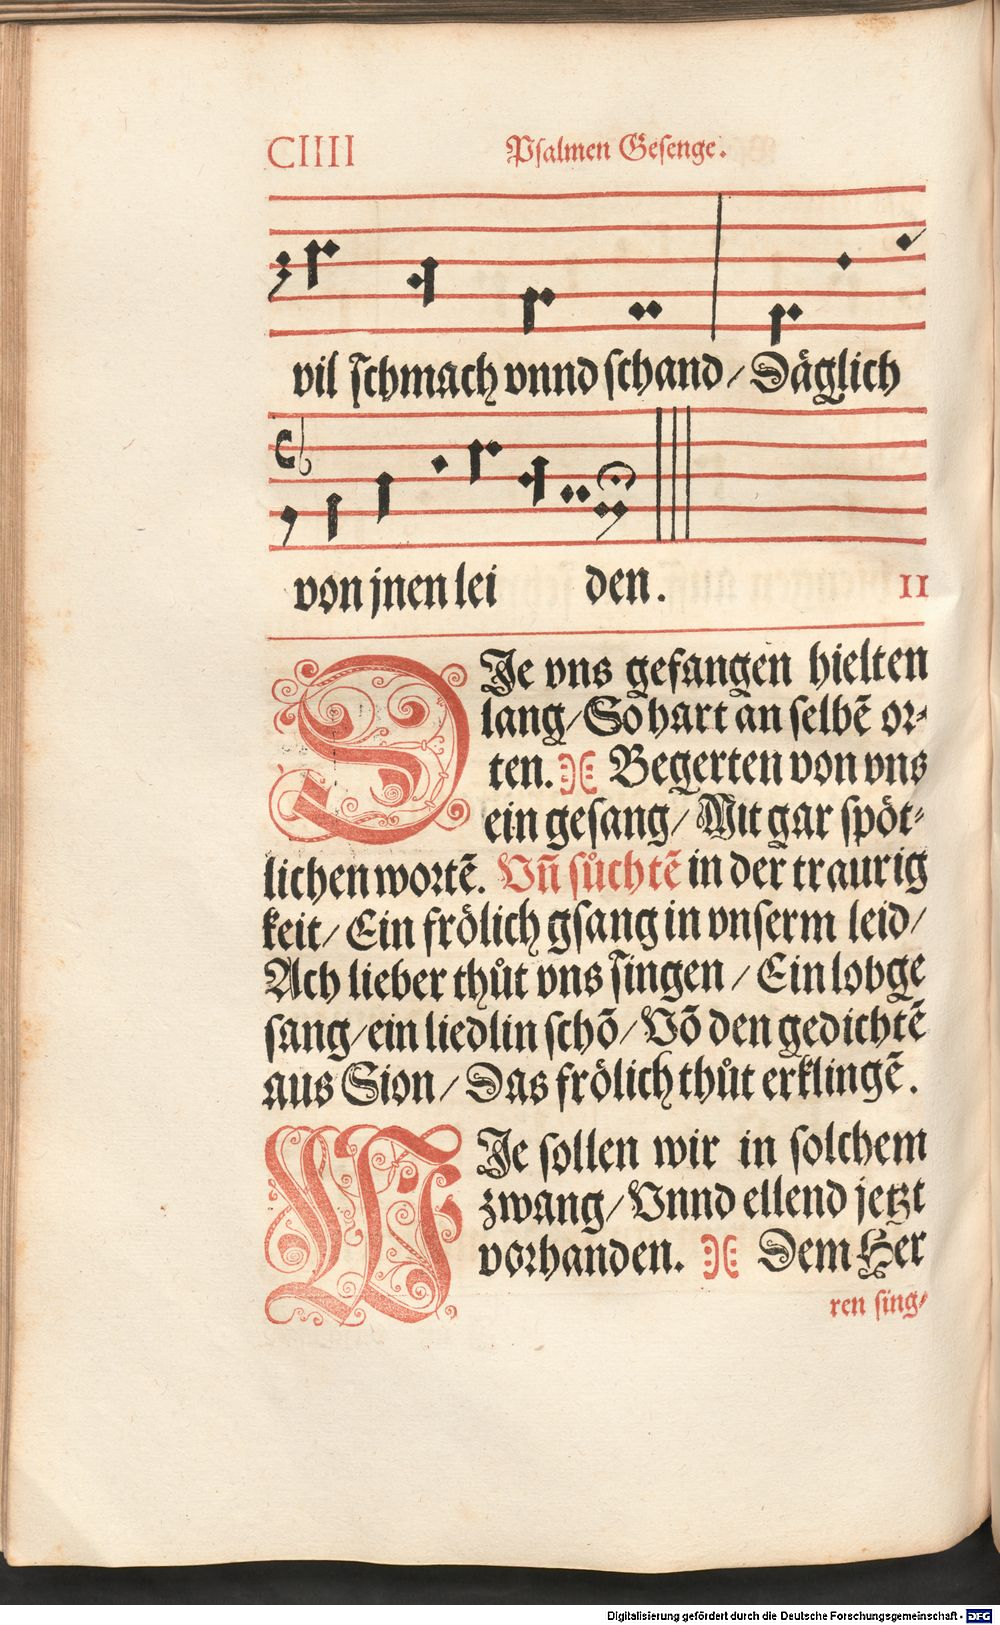 CIIII Psalmen Gesenge.
vil schmach vnnd schand / Däglich
von jnen lei den.
II
DJe vns gefangen hielten
lang / So hart an selbē or⸗
ten. Begerten von vns
ein gesang / Mit gar spöt⸗
lichen wortē. Vñ sůchtē in der traurig
keit / Ein frölich gsang in vnserm leid /
Ach lieber thůt vns singen / Ein lobge
sang / ein liedlin schō / Võ den gedichtē
aus Sion / Das frölich thůt erklingē.
WJe sollen wir in solchem
zwang / Vnnd ellend jetzt
vorhanden. Dem Her
ren sing⸗
Digitalisierung gefördert durch die Deutsche Forschungsgemeinschaft - DFG